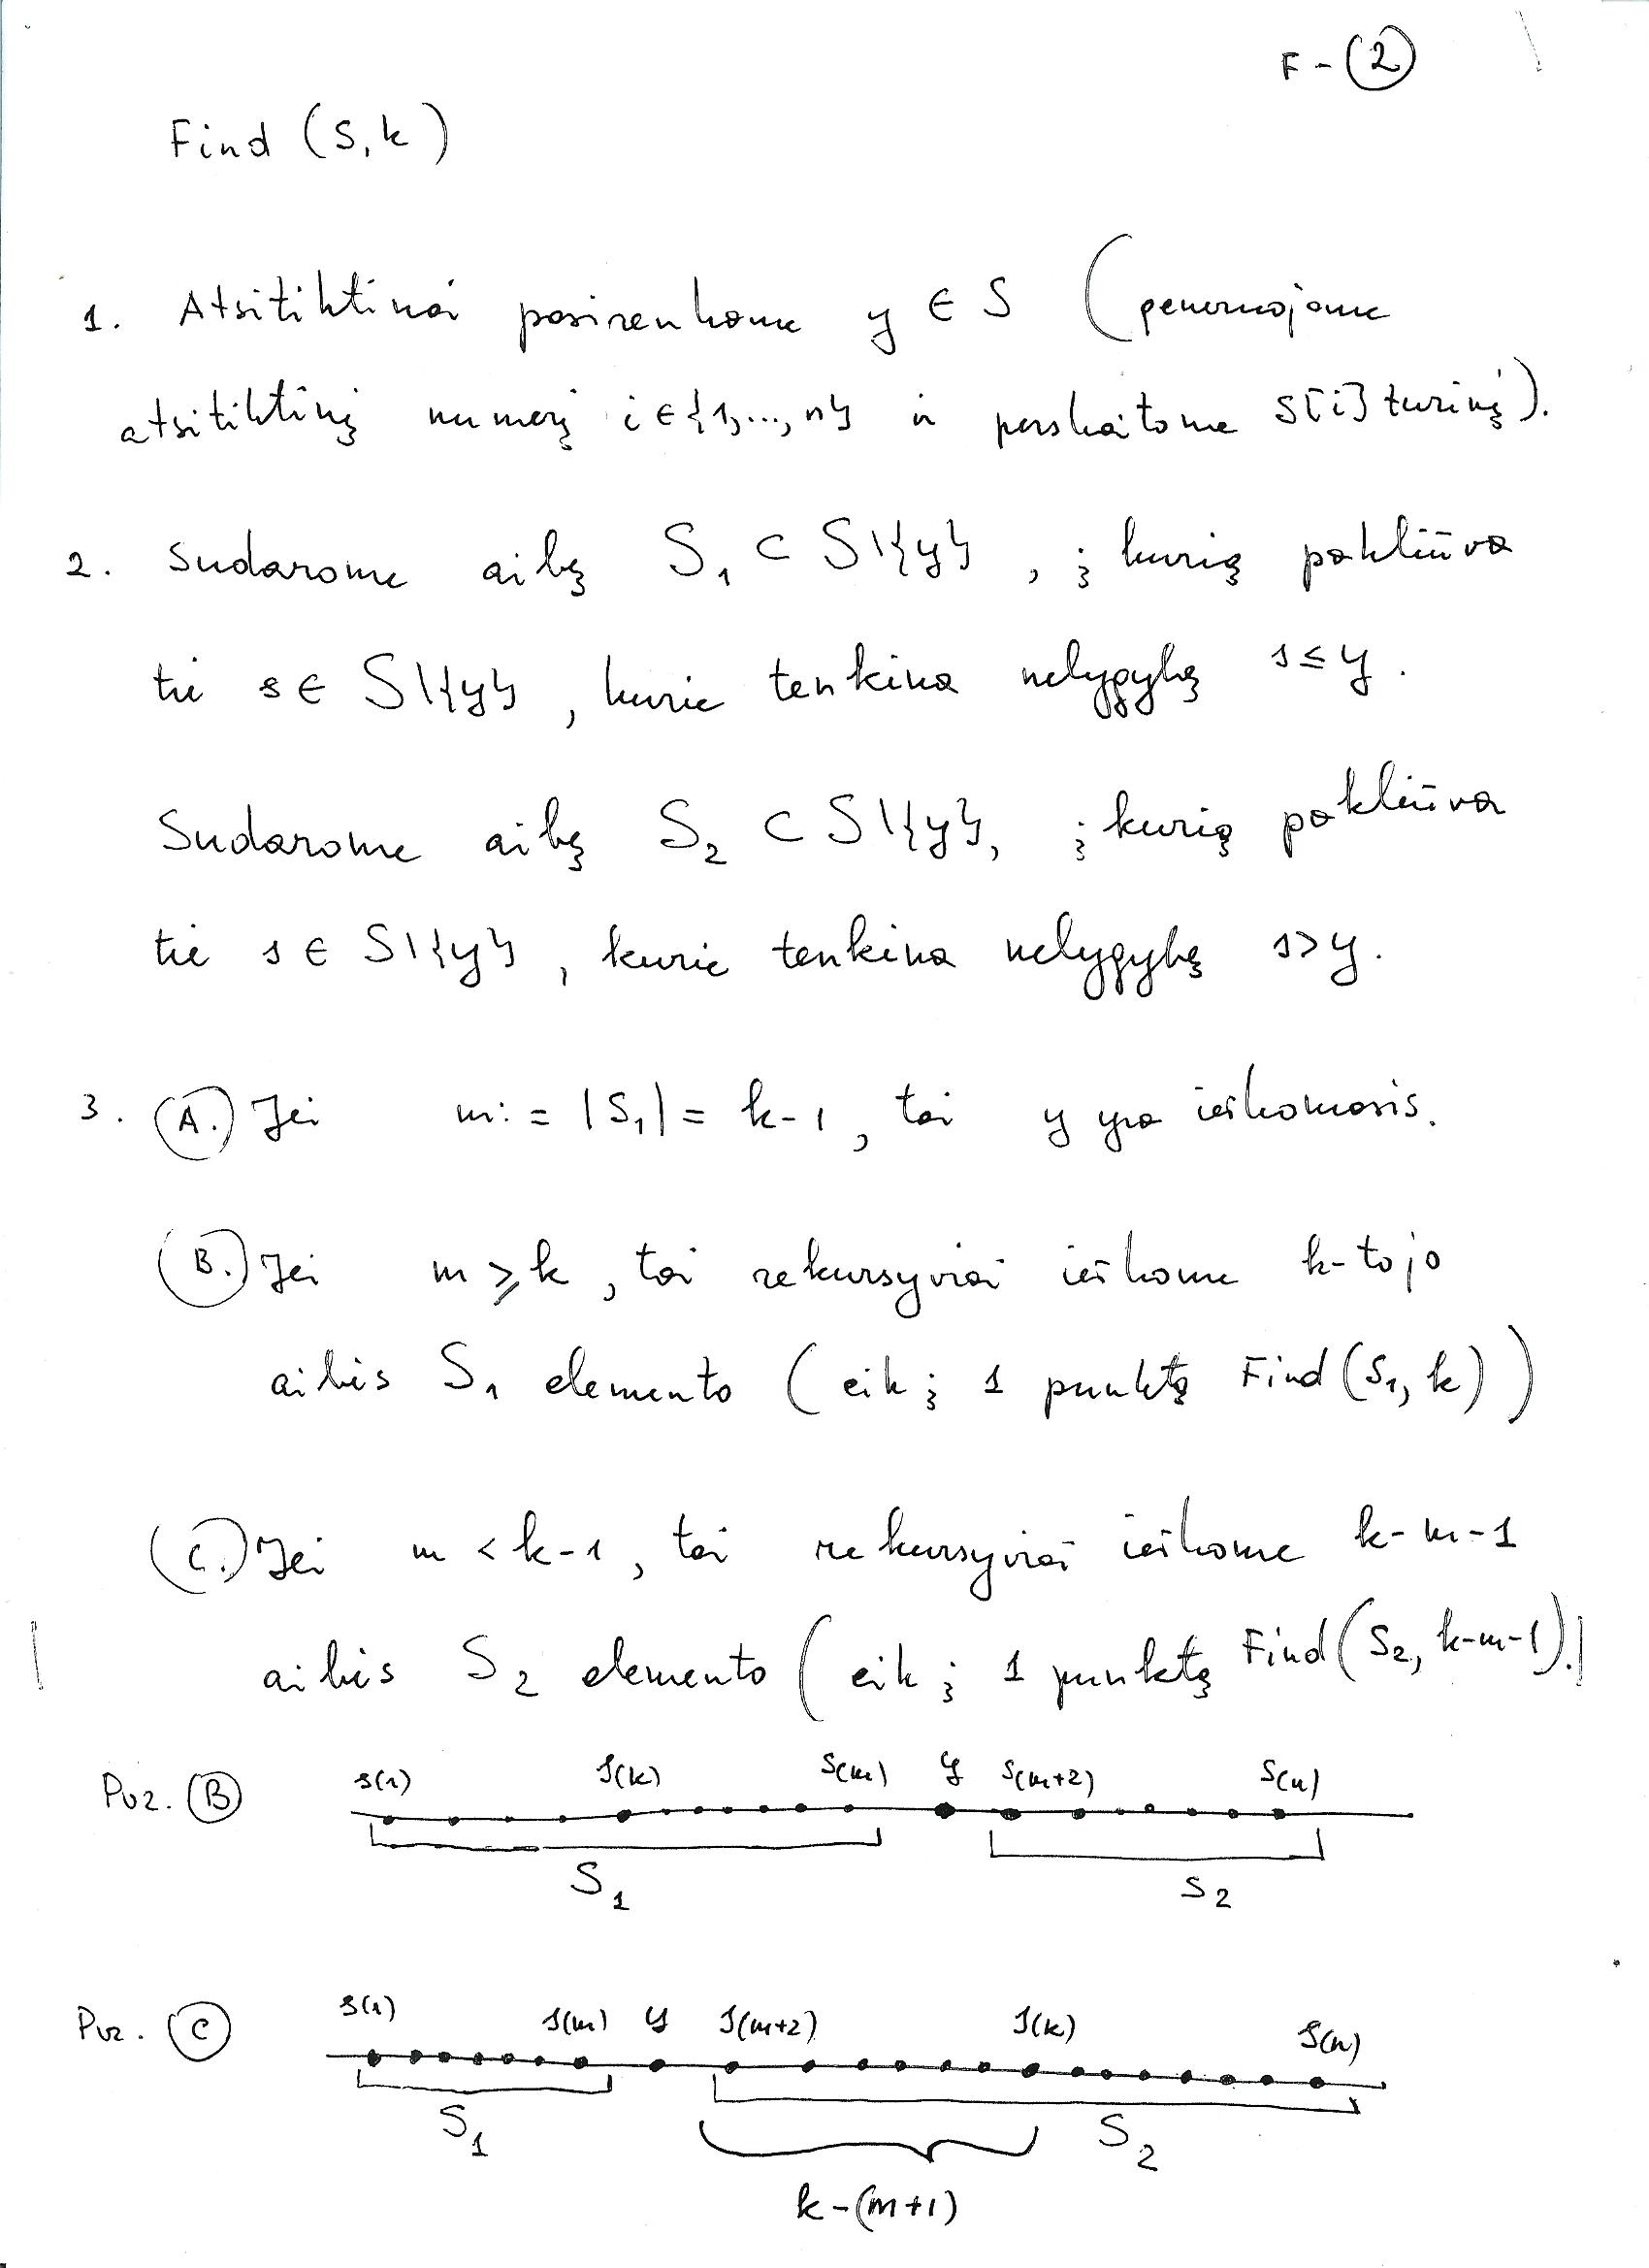 F - (2)
Find (S, k)
1. Atsitiktinai pasirenkame y ∈ S (generuojame
atsitiktinį numerį i ∈ {1, ..., n} ir perskaitome S[i] turinį).
2. Sudarome aibę S₁ ⊂ S\{y}, į kurią pakliūva
tie s ∈ S\{y}, kurie tenkina nelygybę s ≤ y.
Sudarome aibę S₂ ⊂ S\{y}, į kurią pakliūva
tie s ∈ S\{y}, kurie tenkina nelygybę s > y.
3. (A.) Jei m := |S₁| = k-1, tai y yra ieškomasis.
(B.) Jei m ⩾ k, tai rekursyviai ieškome k-tojo
aibės S₁ elemento (eik į 1 punktą Find (S₁, k))
(C.) Jei m < k-1, tai rekursyviai ieškome k-m-1
aibės S₂ elemento (eik į 1 punktą Find (S₂, k-m-1).
Pvz. (B) S(1) S(k) S(m) y S(m+2) S(n)
S₁ S₂
Pvz. (C) S(1) S(m) y S(m+2) S(k) S(n)
S₁ S₂
k-(m+1)